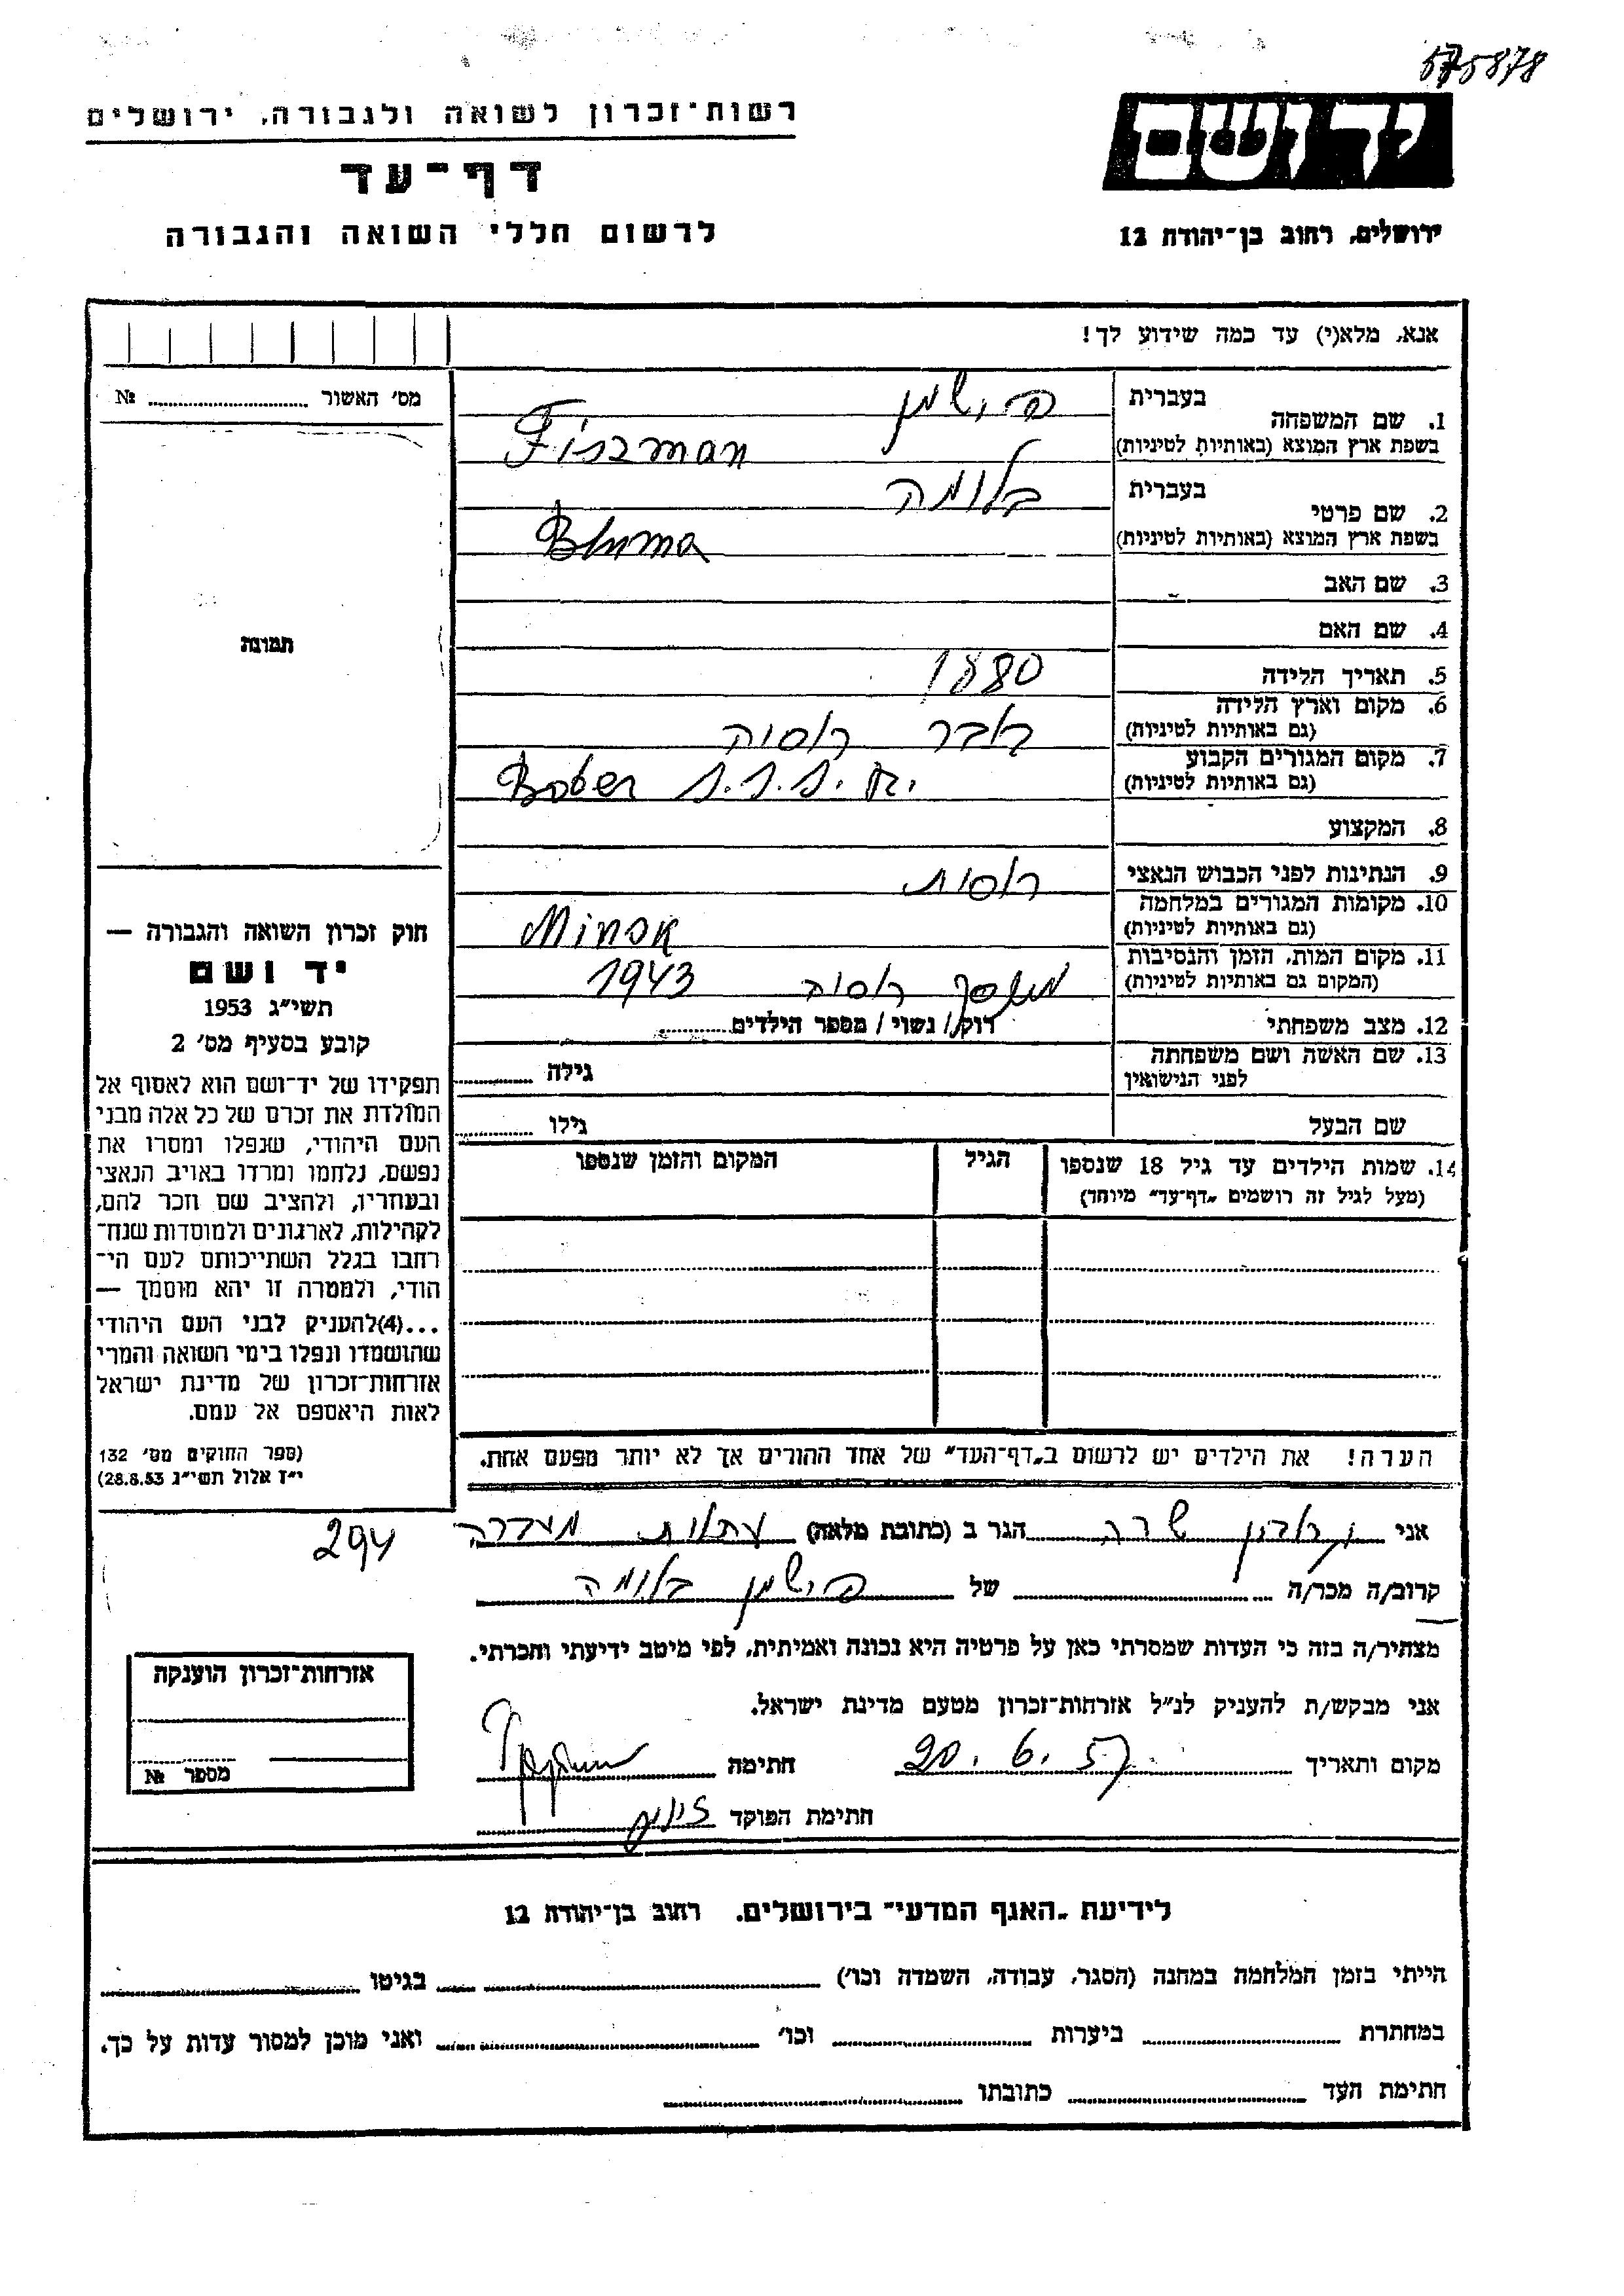 575878
ידושם
ירושלים, רחוב בן־יהודה 12
רשות־זכרון לשואה ולגבורה, ירושלים
דף־עד
לרשום חללי השואה והגבורה
אנא, מלא(י) עד כמה שידוע לך!
מס׳ האשור № 
בעברית פישמן
1. שם המשפחה
בשפת ארץ המוצא (באותיות לטיניות) Fiszman
בעברית בלומה
2. שם פרטי
בשפת ארץ המוצא (באותיות לטיניות) Bluma
3. שם האב
4. שם האם
5. תאריך הלידה 1880
6. מקום וארץ הלידה
(גם באותיות לטיניות) בבר רוסיה
7. מקום המגורים הקבוע
(גם באותיות לטיניות) Bober S.S.S.R.
8. המקצוע
9. הנתינות לפני הכבוש הנאצי רוסית
10. מקומות המגורים במלחמה
(גם באותיות לטיניות) Minsk
11. מקום המות, הזמן והנסיבות
(המקום גם באותיות לטיניות) רוסיה 1943
12. מצב משפחתי רוק/ נשוי/ מספר הילדים
13. שם האשה ושם משפחתה
לפני הנישואין גילה
שם הבעל גילו
14. שמות הילדים עד גיל 18 שנספו הגיל המקום והזמן שנספו
(מעל לגיל זה רושמים „דף־עד״ מיוחד)
תמונה
חוק זכרון השואה והגבורה —
יד ושם
תשי״ג 1953
קובע בסעיף מס׳ 2
תפקידו של יד־ושם הוא לאסוף אל
המולדת את זכרם של כל אלה מבני
העם היהודי, שנפלו ומסרו את
נפשם, נלחמו ומרדו באויב הנאצי
ובעוזריו, ולהציב שם וזכר להם,
לקהילות, לארגונים ולמוסדות שנח־
רחבו בגלל השתייכותם לעם הי־
הודי, ולמטרה זו יהא מוסמך —
...(4)להעניק לבני העם היהודי
שהושמדו ונפלו בימי השואה והמרי
אזרחות־זכרון של מדינת ישראל
לאות היאספם אל עמם.
(ספר החוקים מס׳ 132
י״ז אלול תשי״ג 28.8.53)
הערה! את הילדים יש לרשום ב„דף־העד״ של אחד ההורים אך לא יותר מפעם אחת.
294
אני שרה הגר ב (כתובת מלאה) עתלית מעברה
קרוב/ה מכר/ה של פישמן בלומה
מצהיר/ה בזה כי העדות שמסרתי כאן על פרטיה היא נכונה ואמיתית, לפי מיטב ידיעתי והכרתי.
אני מבקש/ת להעניק לנ״ל אזרחות־זכרון מטעם מדינת ישראל.
מקום ותאריך 20.6.57 חתימה
חתימת הפוקד
אזרחות־זכרון הוענקה
מספר №
לידיעת „האגף המדעי״ בירושלים, רחוב בן־יהודה 12
הייתי בזמן המלחמה במחנה (הסגר, עבודה, השמדה וכו׳) בגיטו
במחתרת ביערות וכו׳ ואני מוכן למסור עדות על כך.
חתימת העד כתובתו